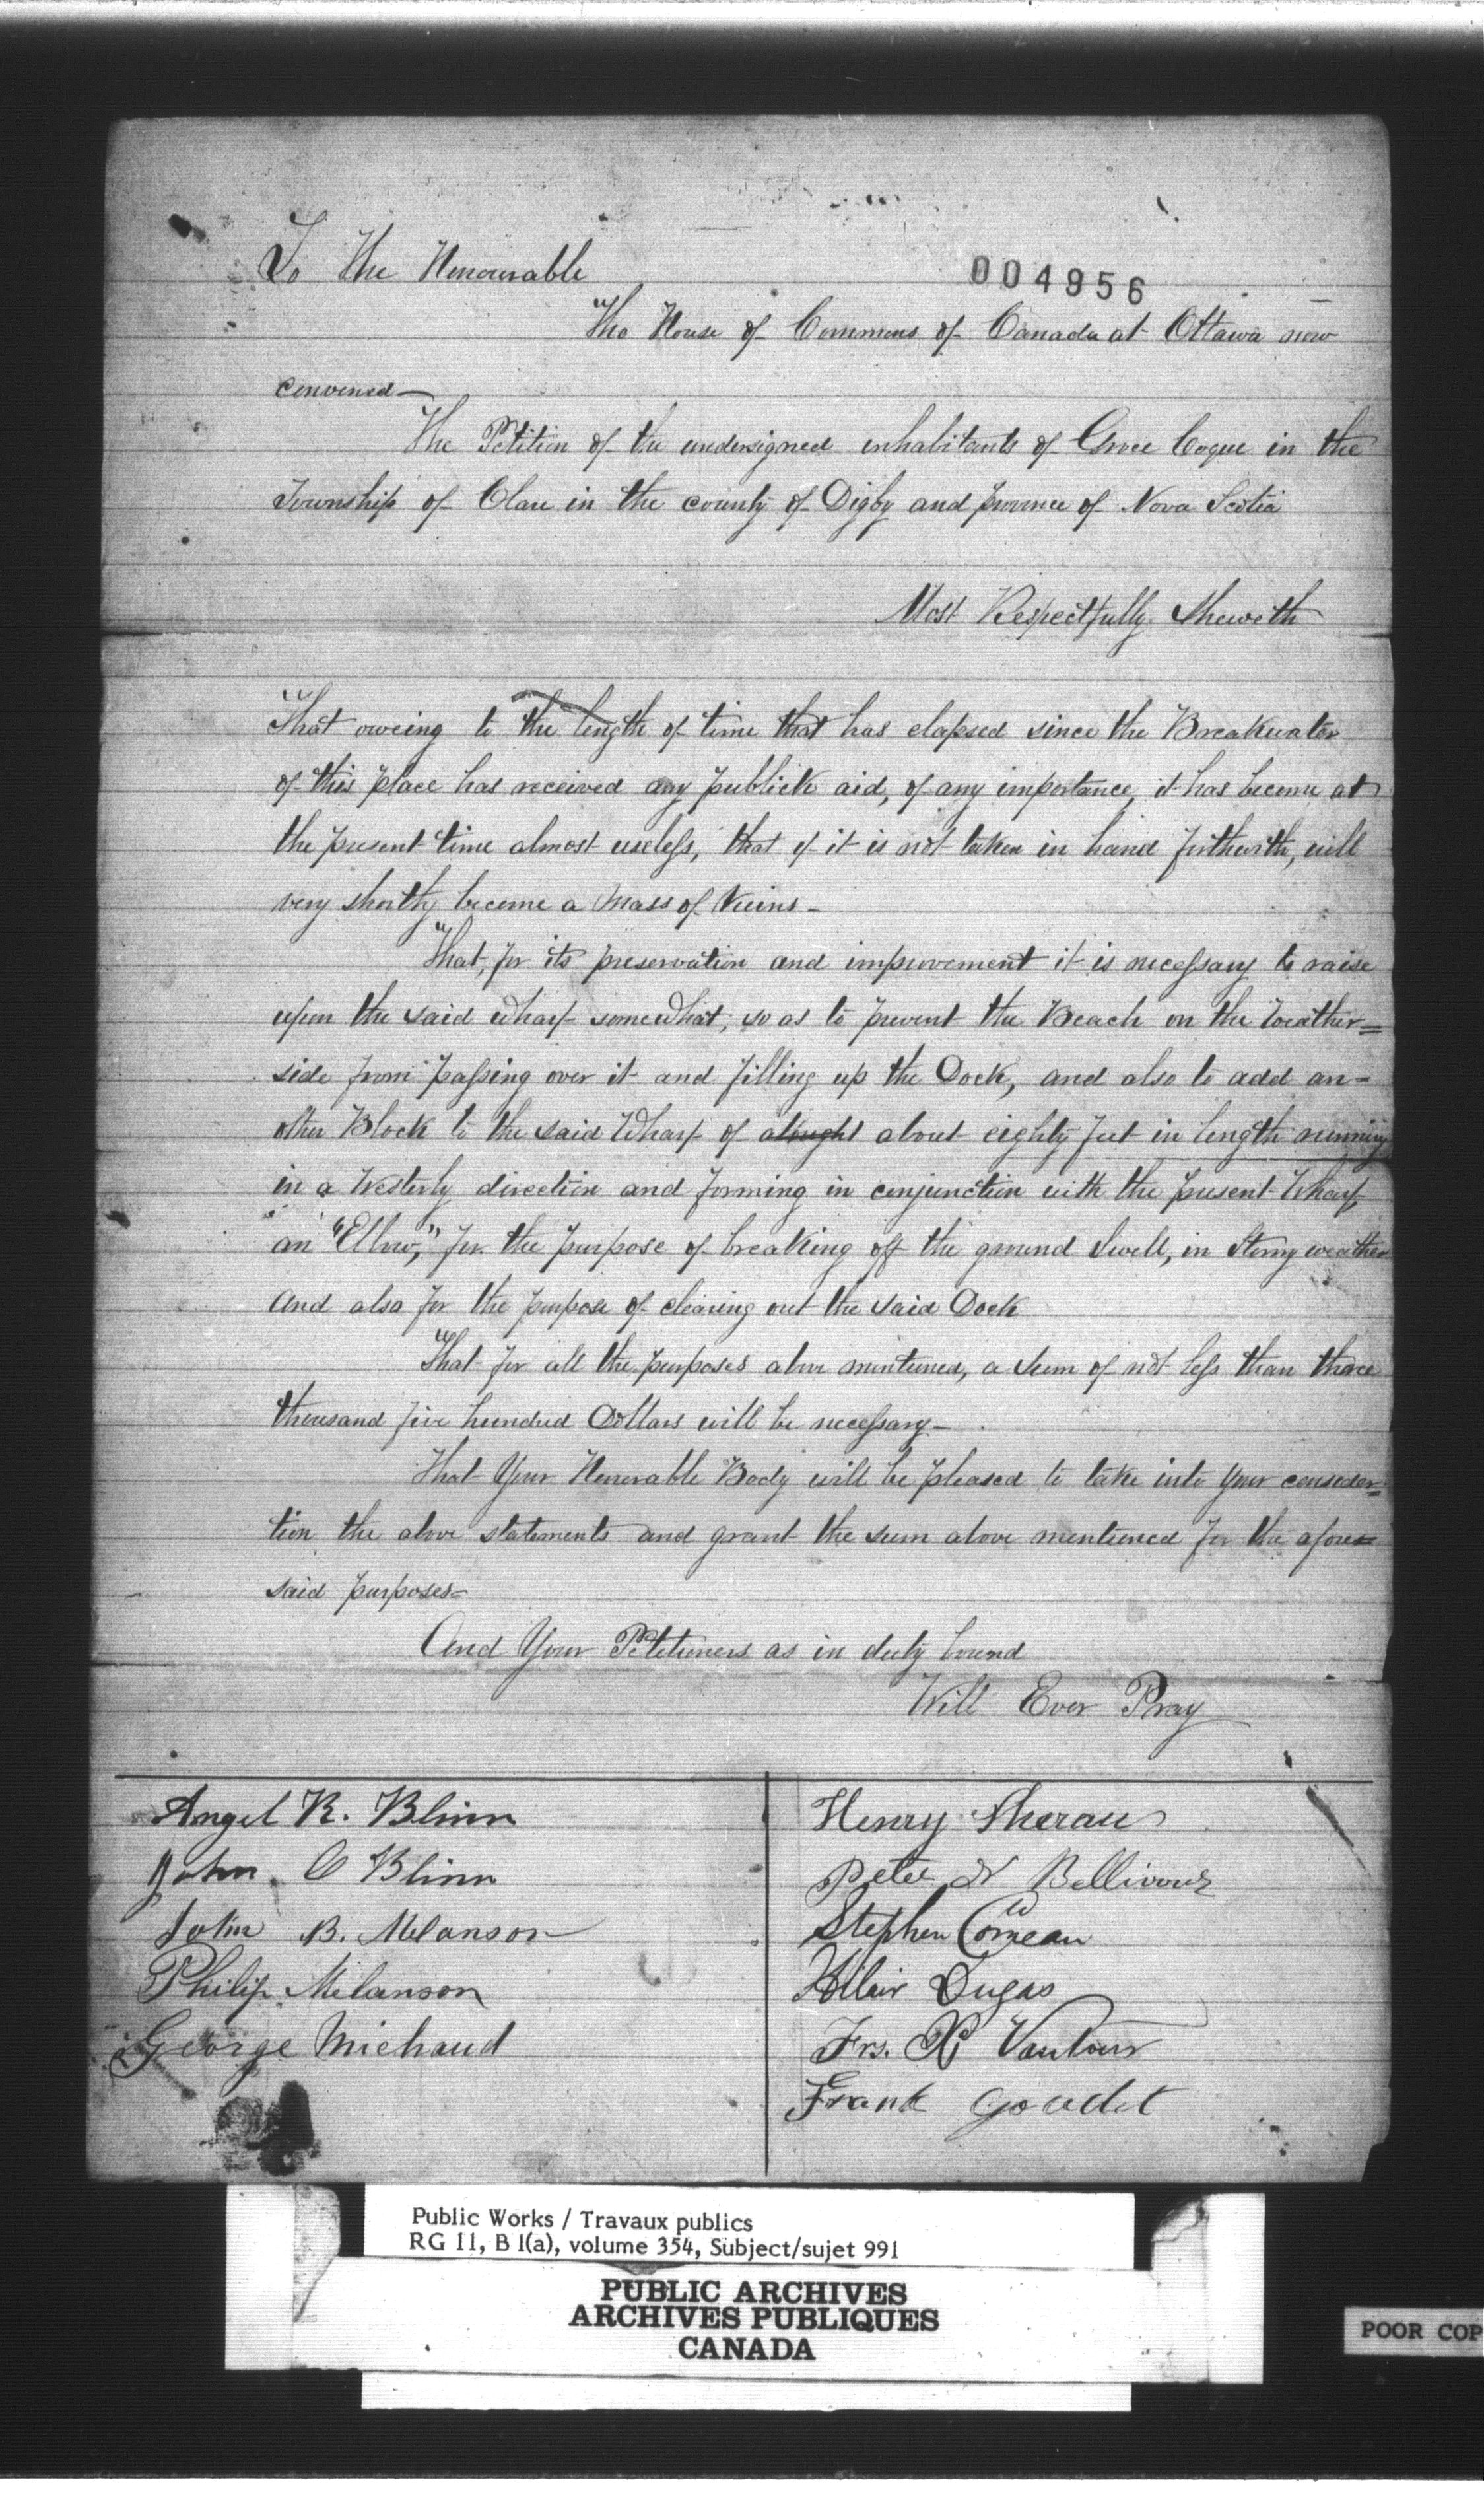 To the Honourable
004956
The House of Commons of Canada at Ottawa now
convened—
The Petition of the undersigned inhabitants of Groce Coque in the
Township of Clare in the county of Digby and province of Nova Scotia
Most Respectfully Sheweth
That oweing to the length of time that has elapsed since the Breakwater
of this place has received any publick aid, of any importance, it has become at
the present time almost useless, that if it is not taken in hand forthwith, will
very shortly become a mass of ruins—
That, for its preservation and improvement it is necessary to raise
upon the said wharf somewhat, so as to prevent the Beach on the weather=
side from passing over it and filling up the Dock, and also to add an=
other Block to the said Wharf of about eighty feet in length running
in a Westerly direction and forming in conjunction with the present Wharf,
an "Elbow," for the purpose of breaking off the ground Swell, in Stormy weather
and also for the purpose of clearing out the said Dock
That for all the purposes above mentioned, a Sum of not less than three
thousand five hundred Dollars will be necessary—
That Your Honorable Body will be pleased to take into your consider=
tion the above statements and grant the sum above mentioned for the afore=
said purposes—
And Your Petitioners as in duty bound
Will Ever Pray
Angel R. Blinn
John O Blinn
John B. Melanson
Philip Melanson
George Michaud
Henry
Peter N Belliveau
Stephen Comeau
Hilair Dugas
Frs. X Vautour
Frank Goudet
Public Works / Travaux publics
RG 11, B 1(a), volume 354, Subject/sujet 991
PUBLIC ARCHIVES
ARCHIVES PUBLIQUES
CANADA
POOR COP